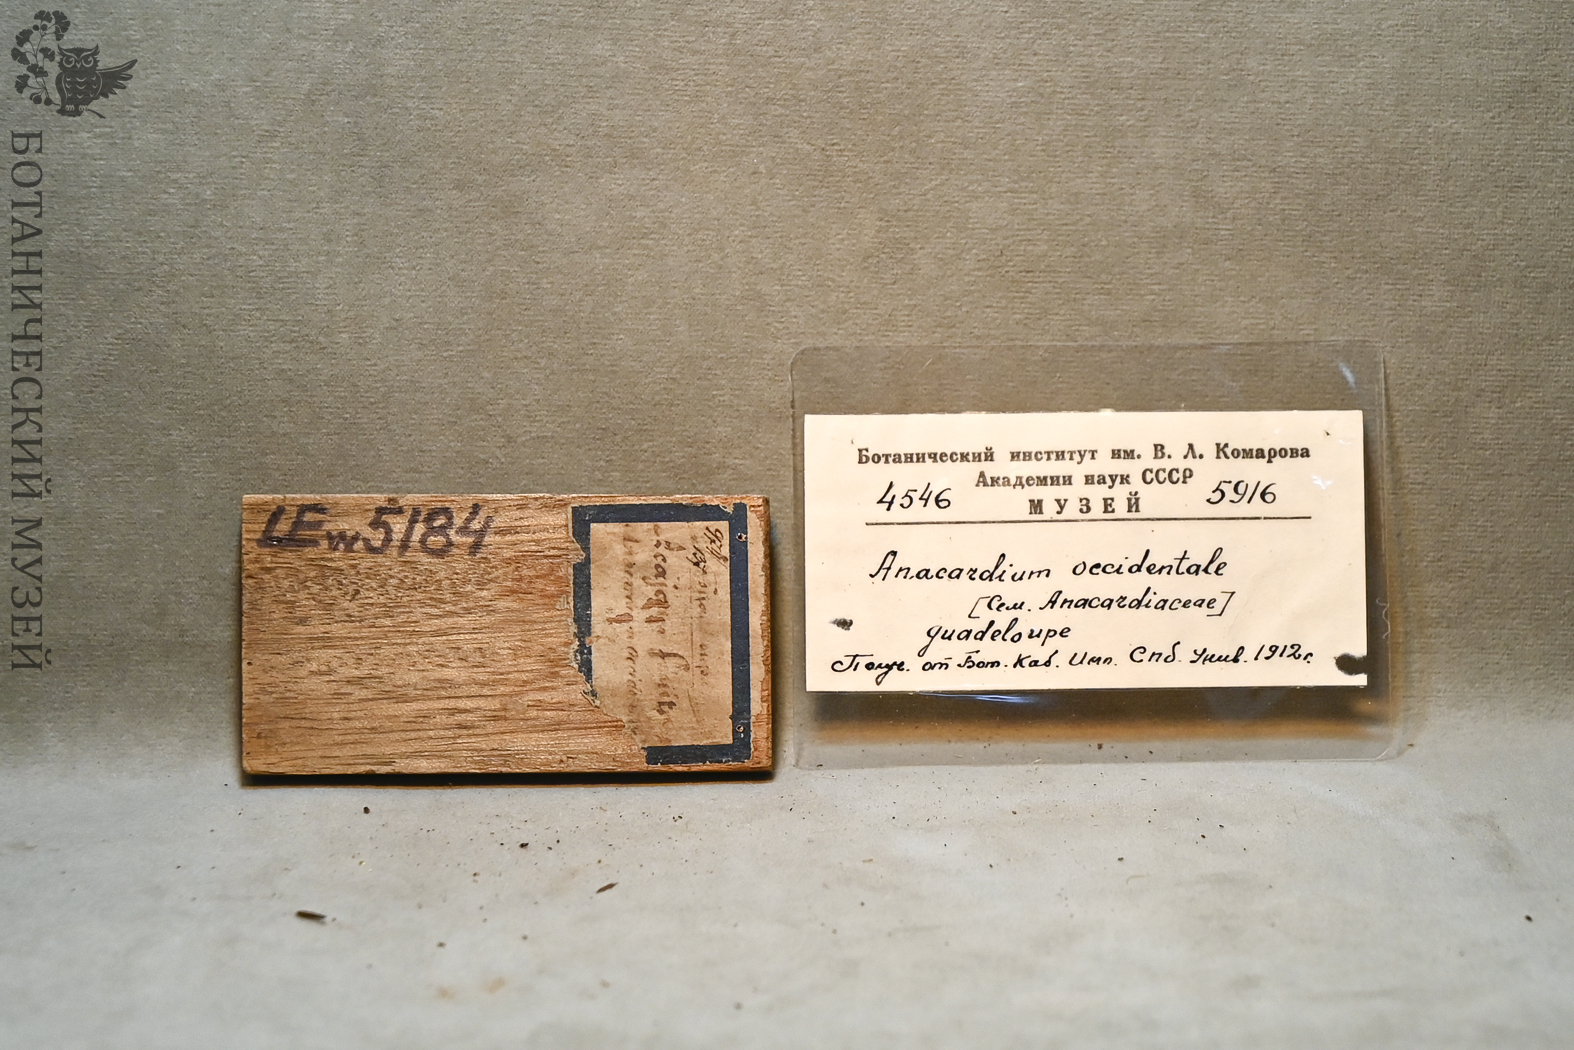 БОТАНИЧЕСКИЙ МУЗЕЙ
LEw5184
Ботанический институт им. В. Л. Комарова
Академии наук СССР
4546 МУЗЕЙ 5916
Anacardium occidentale
[Сем. Anacardiaceae]
guadeloupe
Получ. от Бот. Каб. Имп. Спб. Унив. 1912 г.